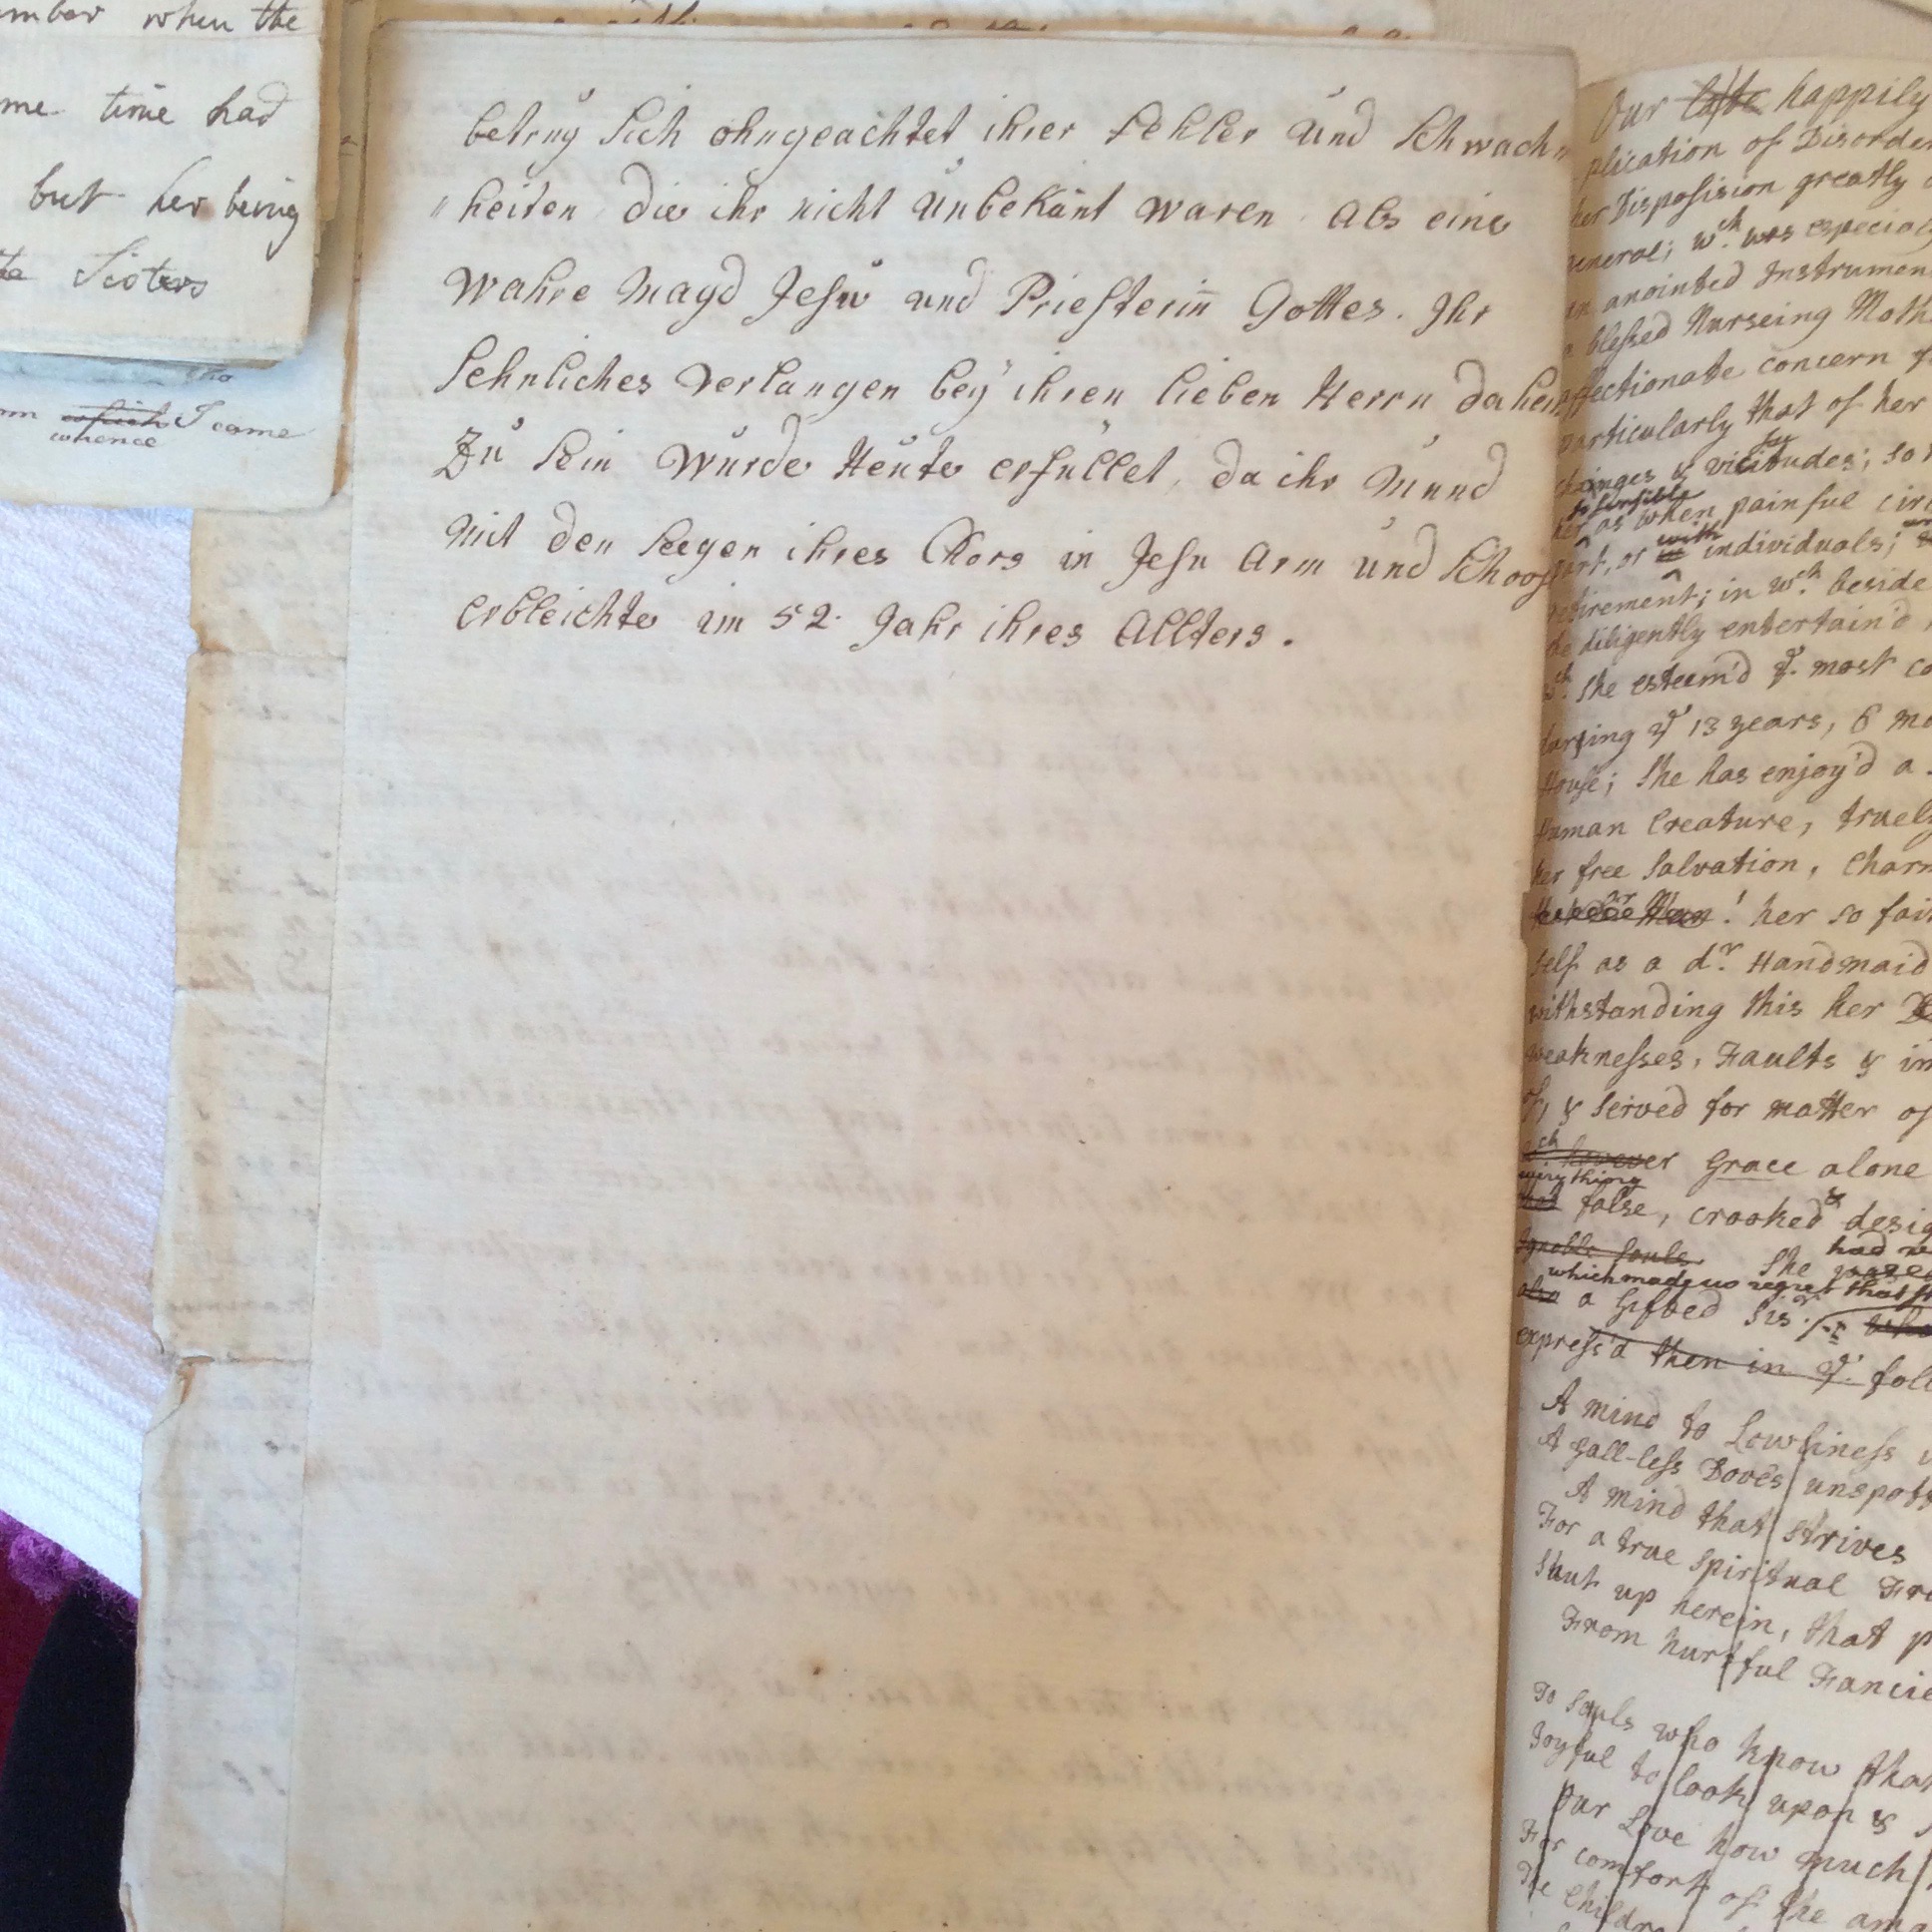 when the
me time had
but her being
Sisters
which I came
whence
betrug sich ohngeachtet ihrer Fehler und Schwach„
„heiten die ihr nicht unbekañt waren als eine
wahre Magd Jesu und Priesteriñ Gottes. Ihr
sehnliches Verlangen bey ihren lieben Herrn daheim
Zu sein wurde Heute erfüllet, da ihr Mund
mit den Seegen ihres Chors in Jesu Arm und Schoos
erbleichte im 52. Jahr ihres Allters.
Our happily
plication of Disorder
her Disposision greatly
general; wch. was especial
an anointed Instrumen
a blessed Nurseing Moth
affectionate concern
particularly that of her
changes & vicitudes; so
as when painful circ
or with individuals;
retirement; in wch. beside
diligently entertain'd
She esteem'd ye. most co
during ye 13 years, 6 mo
House; She has enjoy'd a
Human Creature, truely
her free Salvation, Charm
! her so fai
self as a dr. Handmaid
withstanding this her
weaknesses, Faults & im
of, & served for matter of
however Grace alone
everything
false, crooked & desig
Ignoble Souls. She had
which made us regret that
also a Gifted Sisr.
express'd then in ye. foll
A mind to Lowliness
A gall-less Dove's unspott
A mind that strives
For a true Spiritual Fre
Shut up herein, that p
From hurtful Fancie
To Souls who know that
Joyful to look upon &
Our Love how much
For comfort of the am
The Childre